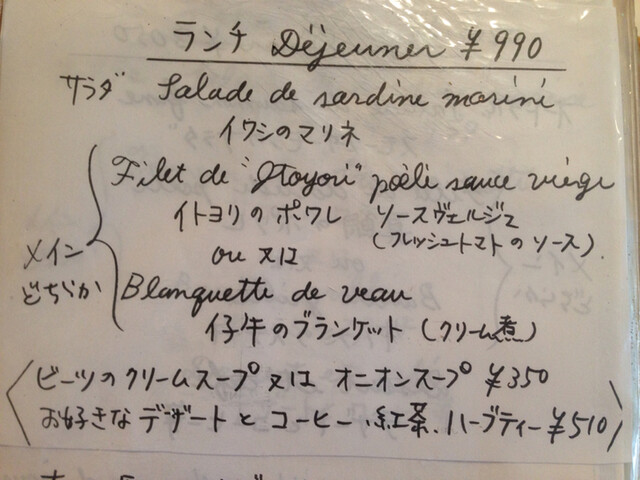 ランチ Déjeuner ¥990
サラダ Salade de sardine marini
イワシのマリネ
Filet de "Itoyori" poêlé sauce viérge
イトヨリのポワレ ソースヴェルジェ
(フレッシュトマトのソース)
メイン ou 又は
どちらか Blanquette de veau
仔牛のブランケット (クリーム煮)
ビーツのクリームスープ 又は オニオンスープ ¥350
お好きなデザートとコーヒー、紅茶、ハーブティー ¥510